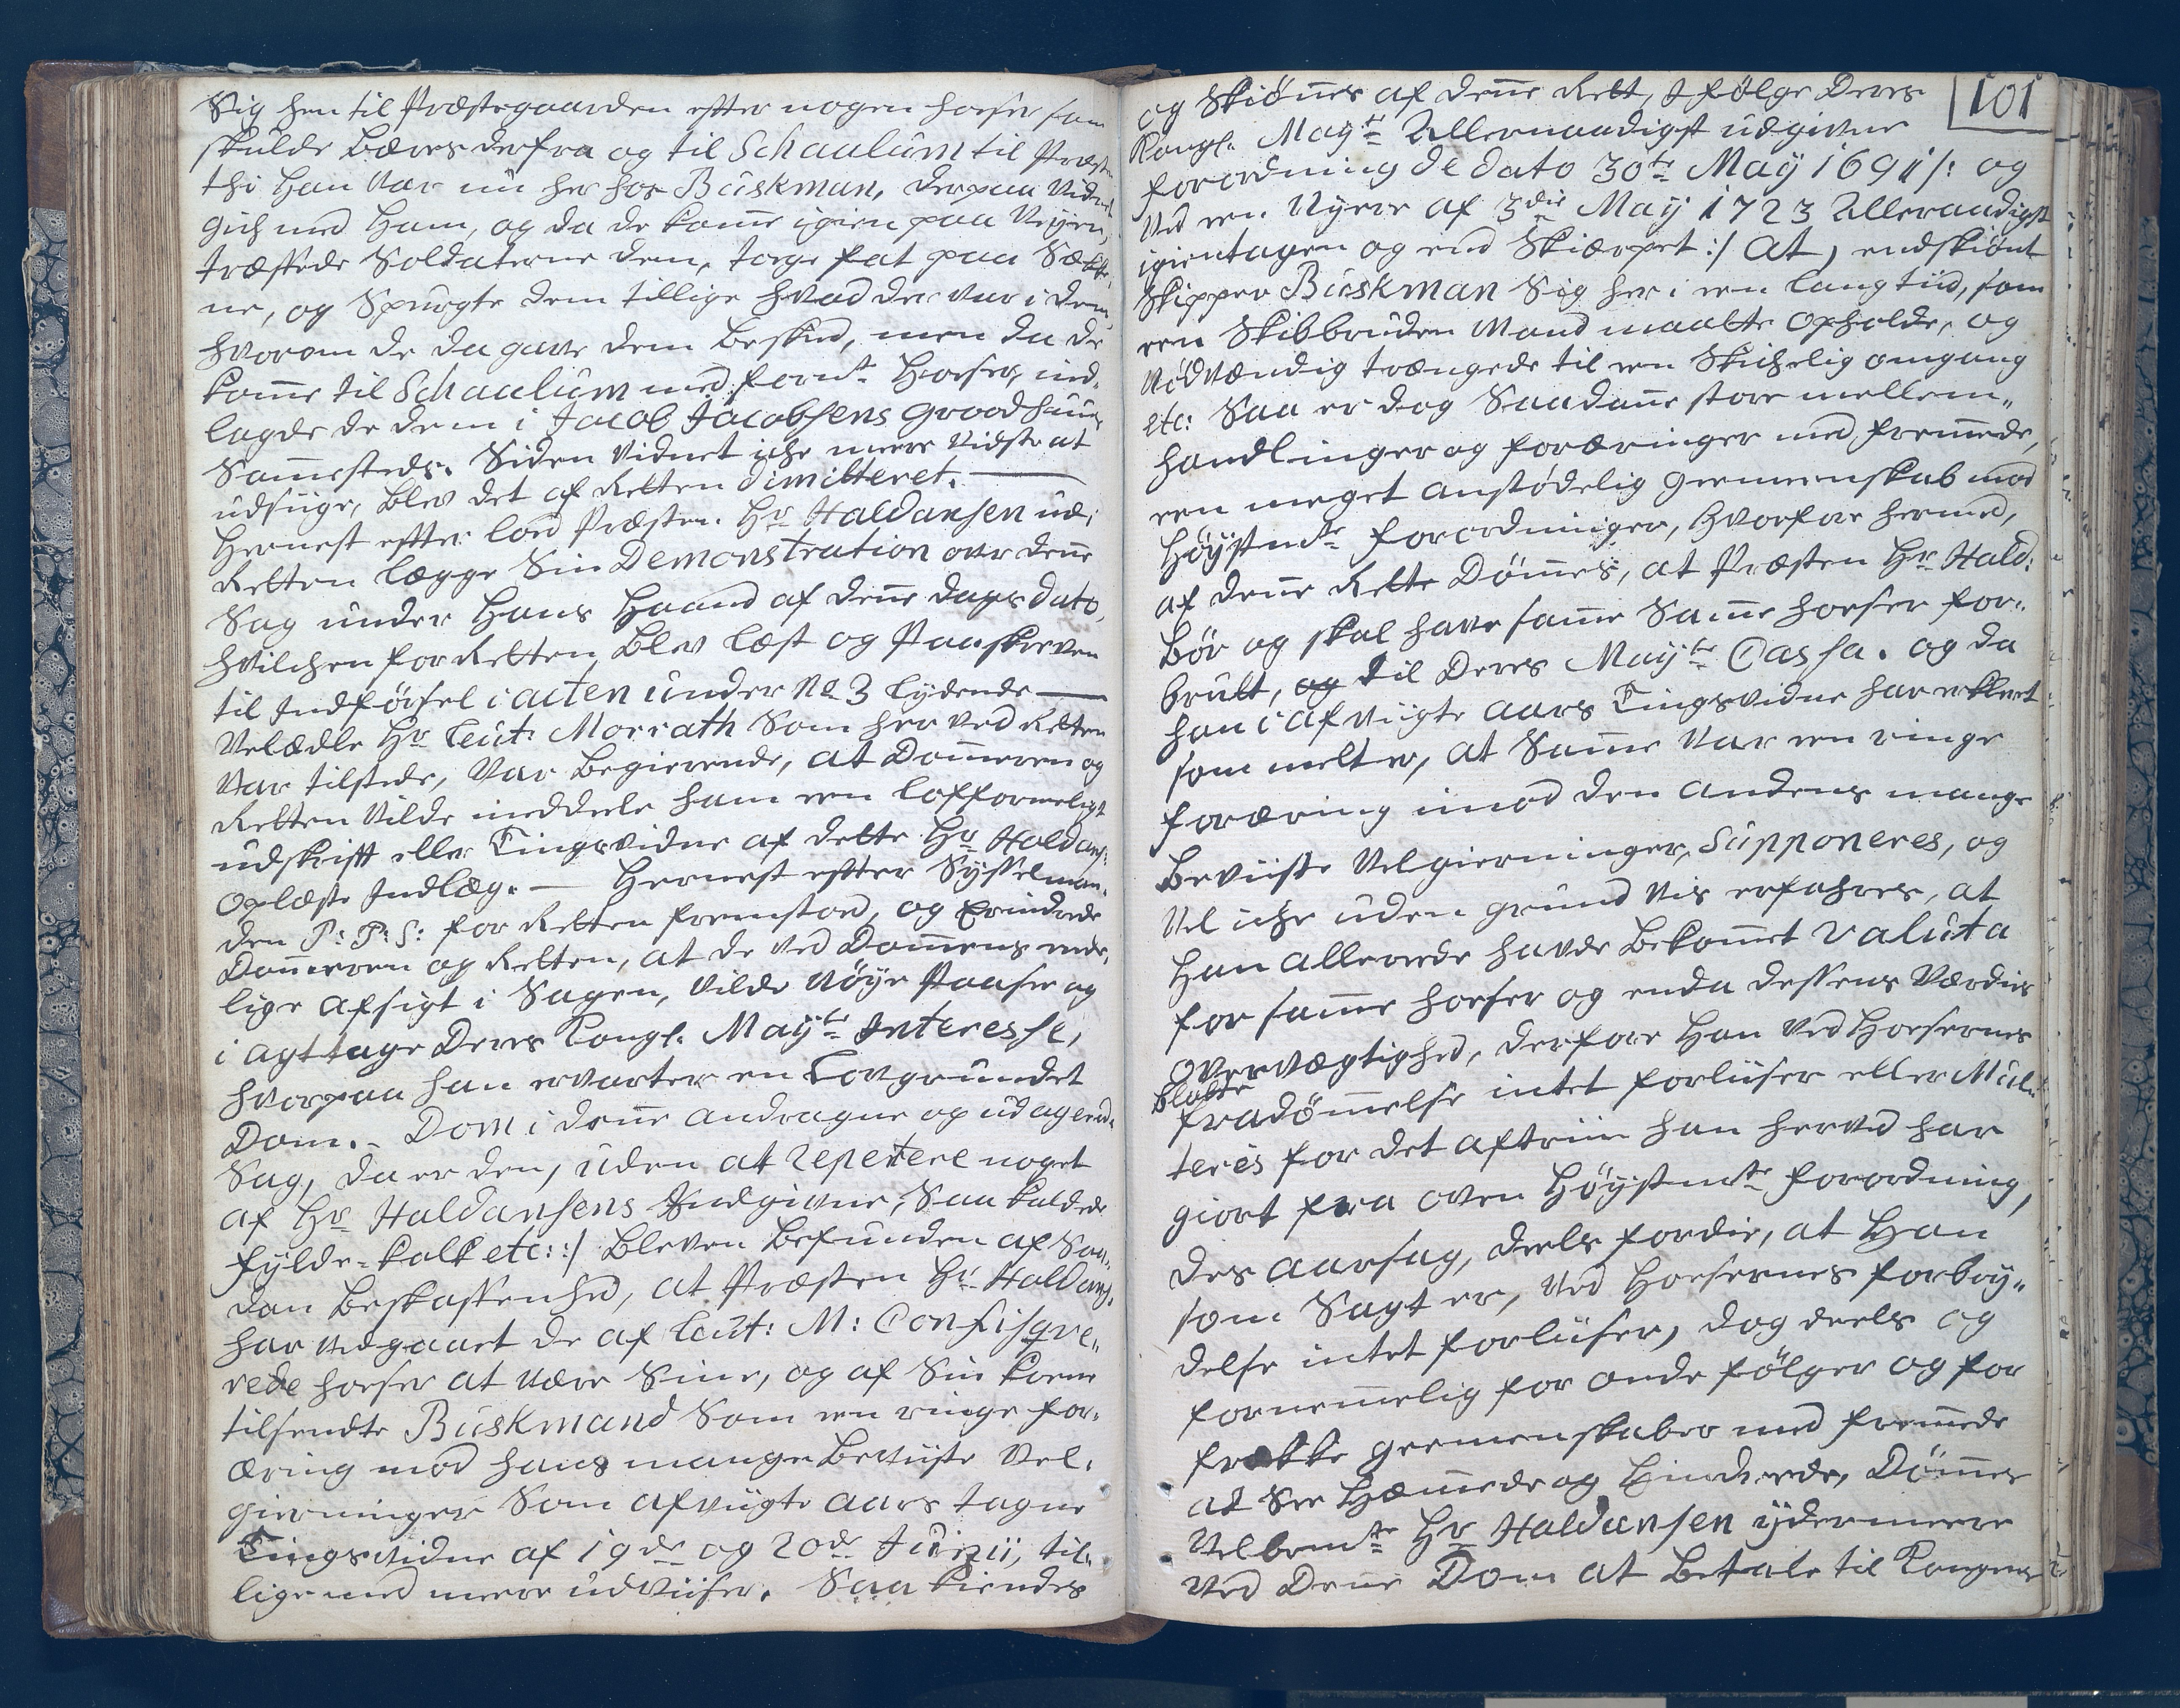 Sig hen til Præstegaarden efter nogen hoser som
skulde Bæres derfra og til Schaalum til Præsten
thi Han Var nu her hos Buskman, derpaa Vidnet
gich med Ham, og da de kome igien paa Veyen,
træffede Soldaterne dem, toge fat paa Sække-
ne, og Spurgte dem tillige hvad der var i dem,
hvorom de da gave dem Besked, men da de
kome til Schaalum med fornte Hoser, ind-
lagde de dem i Jacob Jacobsens Groodhuus
Samesteds. Siden Vidnet iche mere Vidste at
udsiige, Blev det af Retten dimitteret.
Hernest efter lod Præsten Hr Haldansen udi
Retten lægge Sin Demonstration over dene
Sag under Hans Haand af dene dags dato,
hvilchen for Retten Blev læst og Paaskreven
til Indførsel i acten under No 3 lydende
Velædle Hr Leut: Morrath Som her ved Retten
Var tilstede, Var Begierende, at Domeren og
Retten Vilde meddeele ham een lofformeligt
udskrift eller Tingsvidne af dette Hr Haldans:
Oplæste Indlæg. — Hernest efter Sysselman-
den P: P: S: for Retten fremstod, og Erindrede
Domeren og Retten, at de ved Domens ende-
lige afsigt i Sagen, Vilde Nøye Paasee og
i agttage Deres Kongl. Mayts Interesse,
hvorpaa han ervarter en Lovgrundet
Dom. - Dom i dene andragne og udageerede
Sag, da er den, uden at repetere noget
af Hr Haldansens Indgivne, Saa kaldede
fylde-kalk etc: :/ Bleven Befunden af Saa-
dan Beskaffenhed, at Præsten Hr Haldans:
har vedgaaet de af Leut: M: Confisqve-
rede hoser at være Sine, og af Sin kone
tilsendte Buskmand Som een ringe for-
æring mod hans mange Beviiste Vel-
gierninger Som afvigte aars tagne
Tingsvidne af 19de og 20de Junii, til-
lige med mere udviiser. Saa kiendes
101
og Skiønes af dene Rett, I følge Deres
Kongl. Mayts Allernaadigst udgivne
forordning de dato 30te May 1691 /: og
Ved een Nyere af 3die May 1723 Allernaadigst
igientagen og end Skiærpet :/ At, endskiønt
Skipper Buskman Sig her i een lang tiid, som
een Skibbruden Mand maatte opholde, og
Nødvændig trængede til een Skichelig omgang
etc: Saa er dog Saadane store mellem-
handlinger og foræringer med fremede,
een meget anstødelig Gemeenskab mod
Høystnte forordninger, hvorfore hermed,
af dene Rette Dømes, at Præsten Hr Hald:
Bør og skal have same Same hoser for-
brudt, til Deres Mayts Cassa. og da
han i afvigte aars Tingsvidne har erklært
som melt er, at Same Var een ringe
foræring imod den andens mange
Beviiste Velgierninger, Supponeres, og
Vel iche uden grund vis erfahres, at
Han allerede havde Bekomet Valuta
for same hoser og enda dessens Værdies
overvægtighed, derfore Han ved Hosernes
blotte
fradømelse intet forliiser eller Mul-
teres for det aftriin han herved har
giort fra oven Høystnte forordning,
des aarsag, deels fordie, at Han
som Sagt er, ved Hosernes forbry-
delse intet forliiser, dog deels og
fornemelig for onde følger og for
frække gemeenskaber med fremede
at See Hæmede og Hindrede, Dømes
Velbemte Hr Haldansen ydermeere
ved Dene Dom at Betale til Kongens